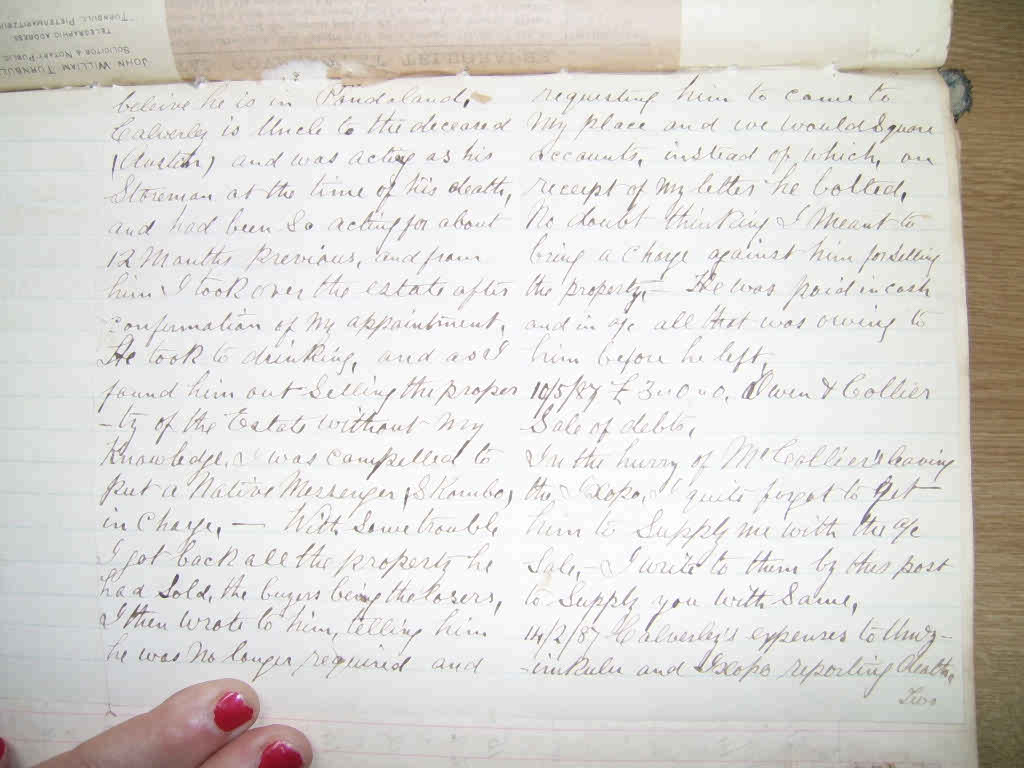 JOHN WILLIAM TURNBULL
SOLICITOR & NOTARY PUBLIC
TELEGRAPHIC ADDRESS
"TURNBULL PIETERMARITZBURG
beleive he is in Pondoland.
Calverley is Uncle to the deceased
(Austin) and was acting as his
Storeman at the time of his death,
and had been So acting for about
12 Months Previous, and from
him I took over the estate after
Confirmation of my appointment.
He took to drinking, and as I
found him out Selling the proper
-ty of the Estate without my
Knowledge, I was compelled to
put a Native Messenger, Skombo,
in Charge, — With Some trouble
I got back all the property he
had Sold, the buyers being the losers,
I then wrote to him, telling him
he was no longer required and
requesting him to come to
My place and we would Square
accounts, instead of which, on
receipt of my letter he bolted.
No doubt thinking I Meant to
bring a Charge against him for Selling
the property,— He was paid in cash
and in a/c all that was owing to
him before he left,
10/5/87 £3 " 0 " 0. Owen & Collier
Sale of debts,
In the hurry of Mr Collier's leaving
the Ixopo, I quite forgot to get
him to Supply me with the a/c
Sale,— I write to them by this post
to Supply you with Same,
14/2/87 Calverley's expenses to Umz-
-imkulu and Ixopo reporting death.
Two